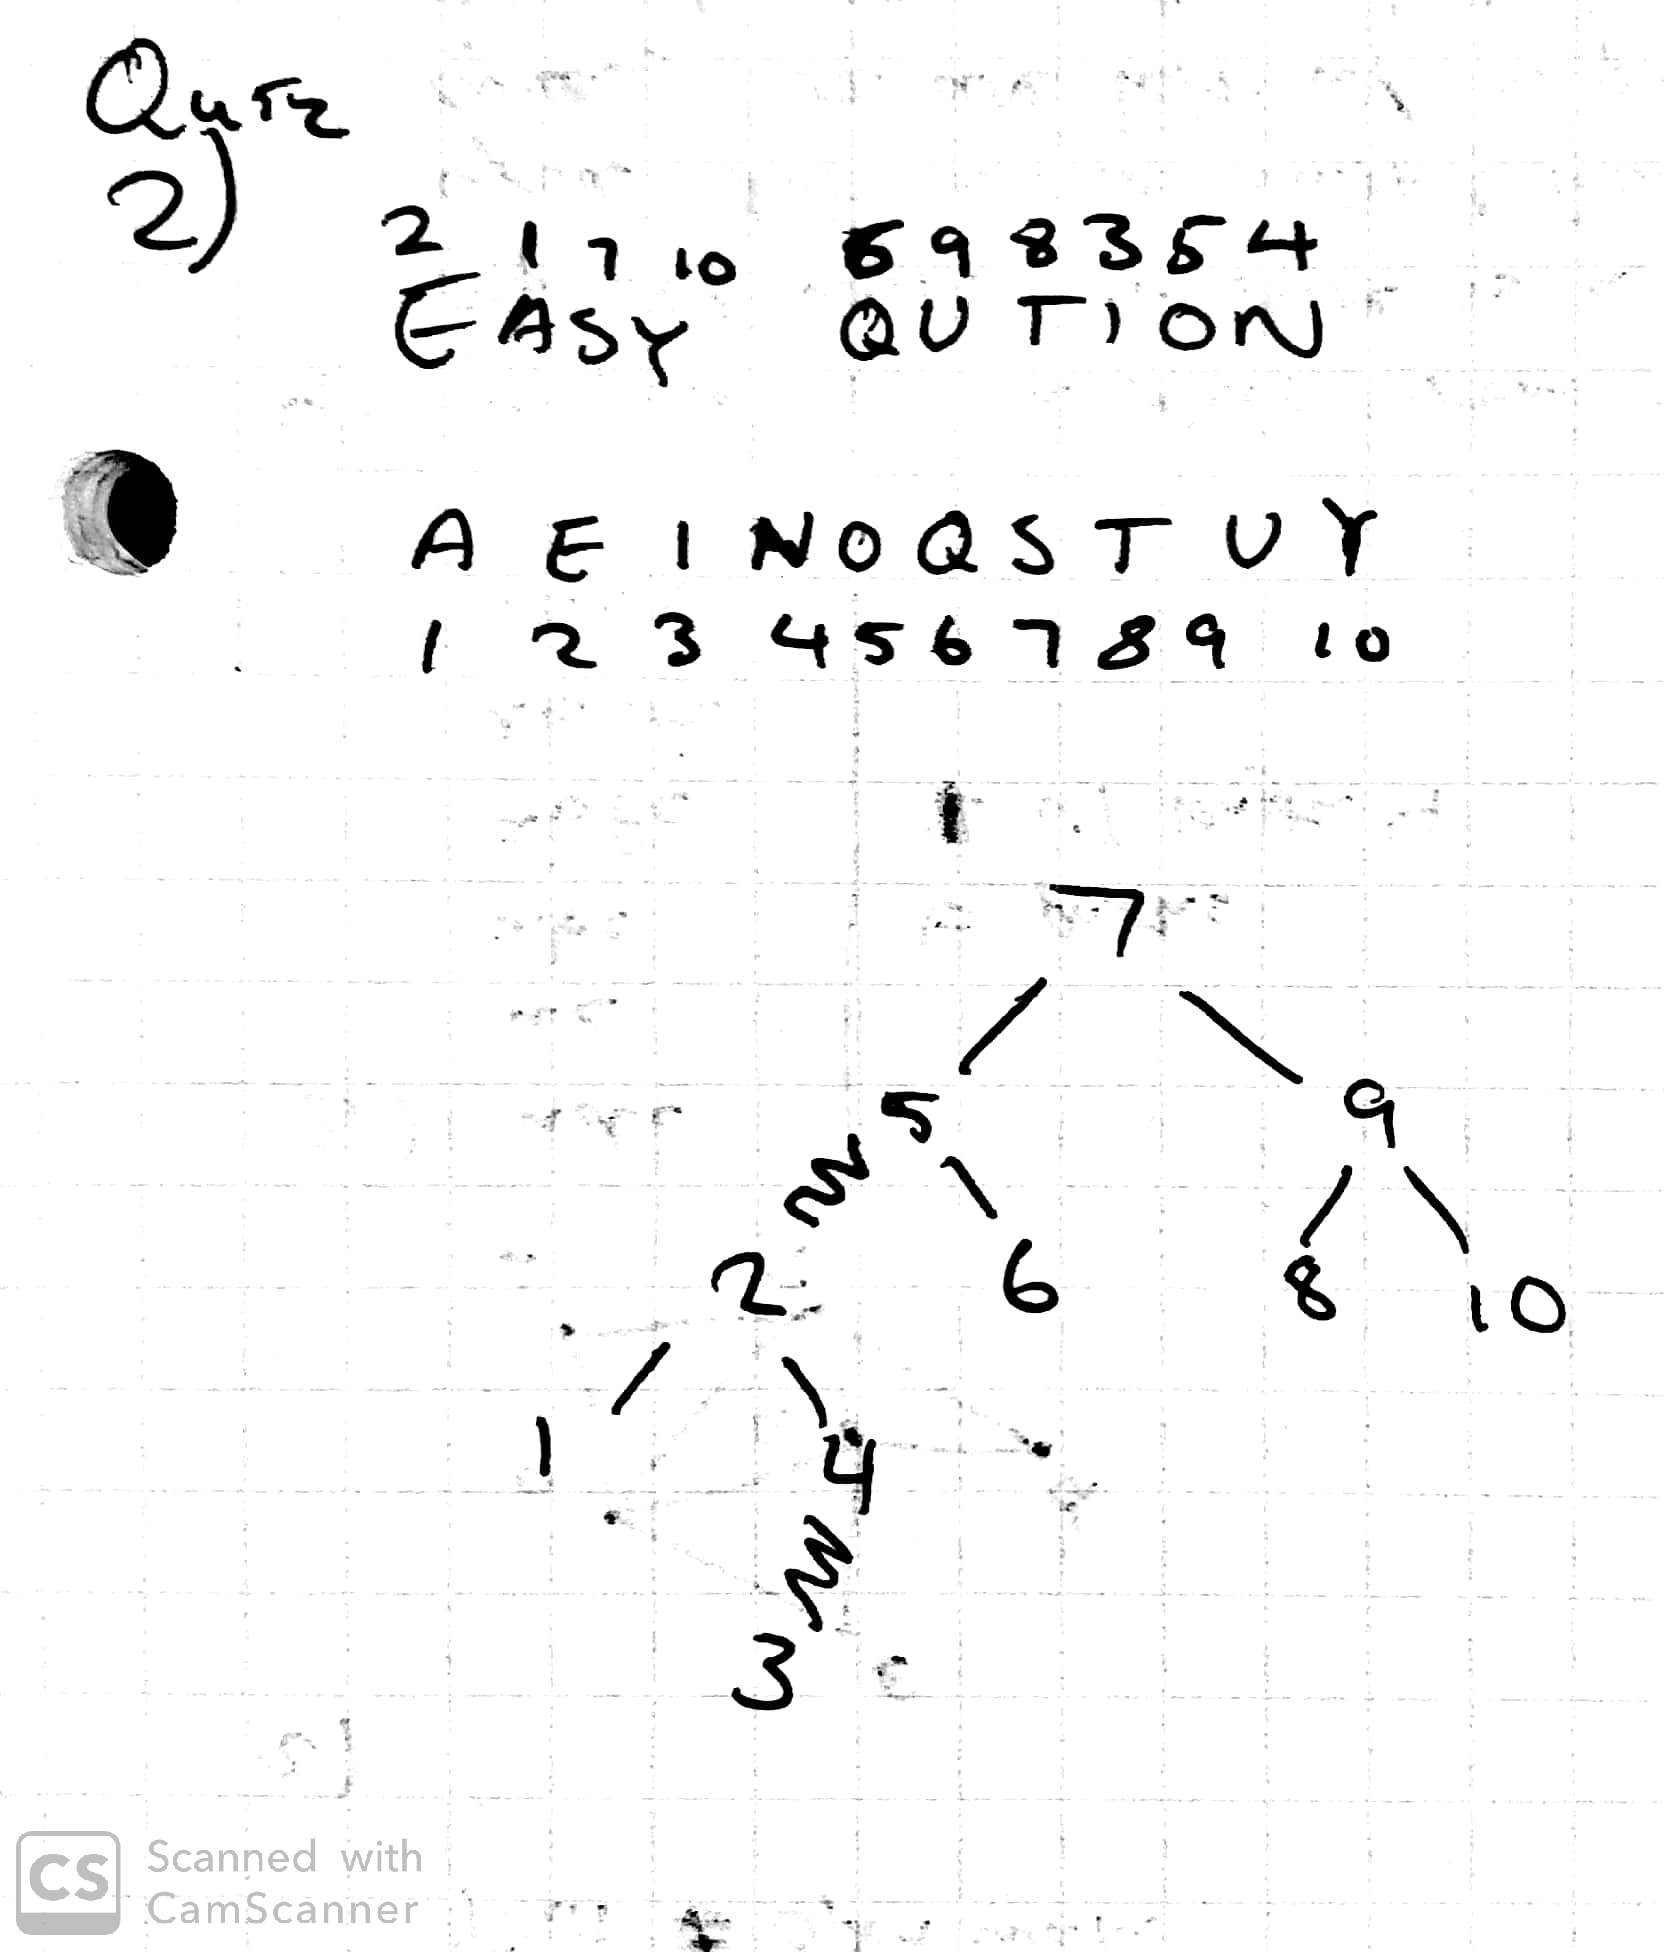 Quiz
2)
2 1 7 10 6 9 8 3 5 4
EASY QUTION
A E I N O Q S T U Y
1 2 3 4 5 6 7 8 9 10
7
5 9
2 6 8 10
1 4
3
CS Scanned with
CamScanner